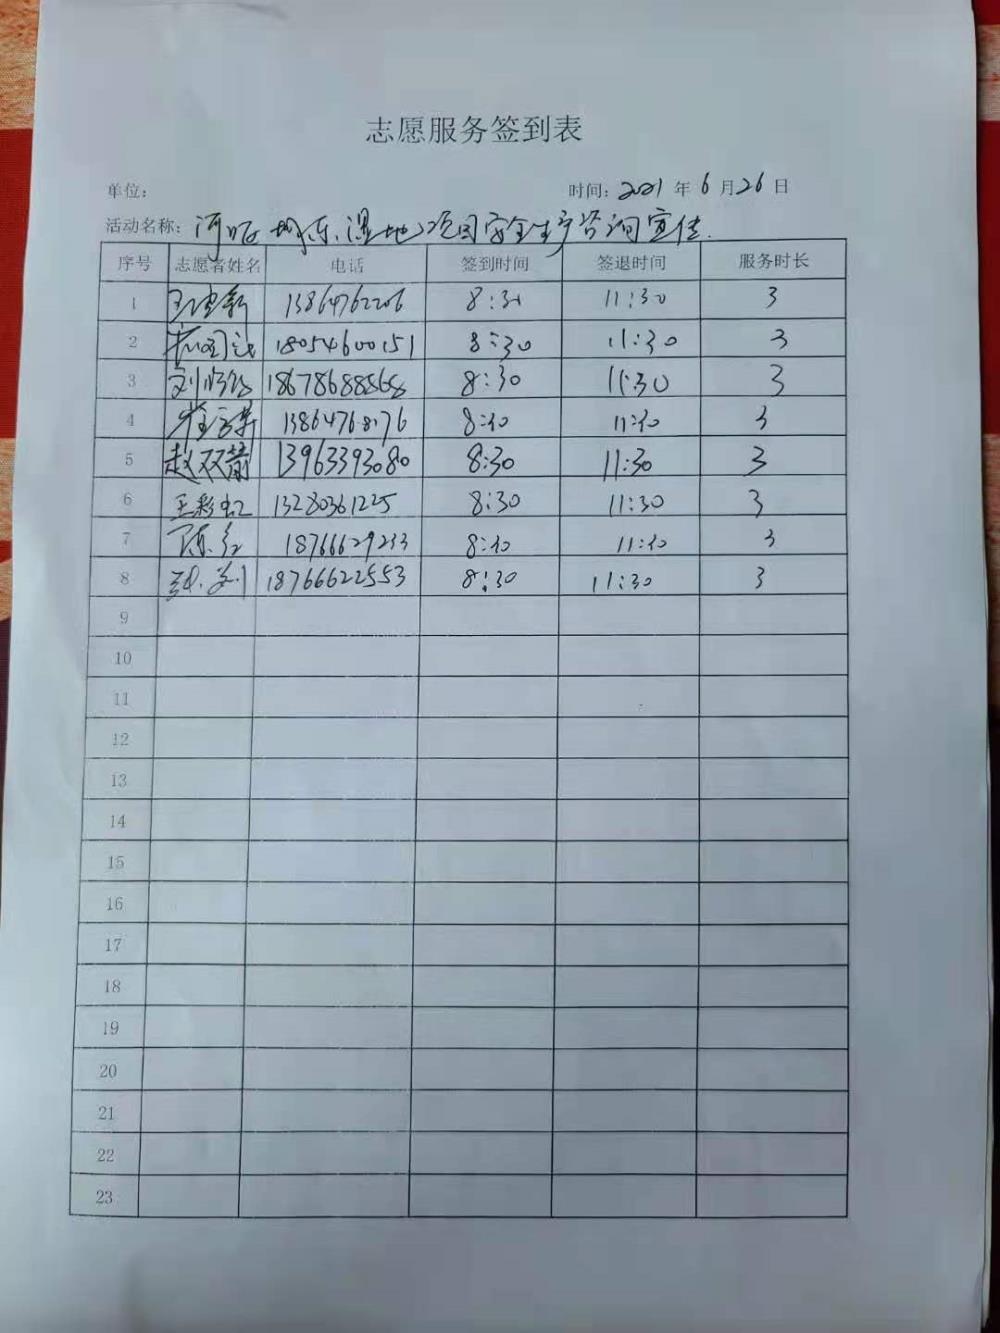 志愿服务签到表
单位: 时间: 2021 年 6 月 26 日
活动名称: 河 城东湿地项目安全生产咨询宣传.
序号 志愿者姓名 电话 签到时间 签退时间 服务时长
1 13864762206 8:30 11:30 3
2 18054600151 8:30 11:30 3
3 18678688568 8:30 11:30 3
4 8:30 11:30 3
5 赵双箭 13963393080 8:30 11:30 3
6 王彩虹 13280361225 8:30 11:30 3
7 18766629233 8:30 11:30 3
8 18766622553 8:30 11:30 3
9
10
11
12
13
14
15
16
17
18
19
20
21
22
23